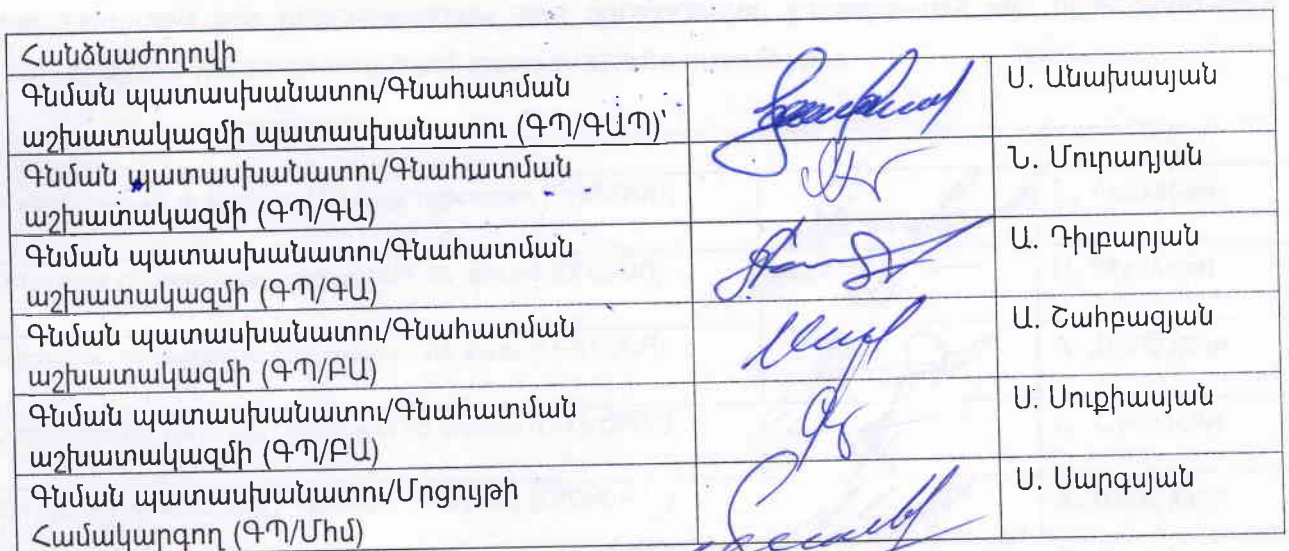 Հանձնաժողովի
Գնման պատասխանատու/Գնահատման
աշխատակազմի պատասխանատու (ԳՊ/ԳԱՊ)՝
Ս. Անախասյան
Գնման պատասխանատու/Գնահատման
աշխատակազմի (ԳՊ/ԳԱ)
Ն. Մուրադյան
Գնման պատասխանատու/Գնահատման
աշխատակազմի (ԳՊ/ԳԱ)
Ա. Դիլբարյան
Գնման պատասխանատու/Գնահատման
աշխատակազմի (ԳՊ/ԲԱ)
Ա. Շահբազյան
Գնման պատասխանատու/Գնահատման
աշխատակազմի (ԳՊ/ԲԱ)
Ս. Սուքիասյան
Գնման պատասխանատու/Մրցույթի
Համակարգող (ԳՊ/Միմ)
Ս. Սարգսյան